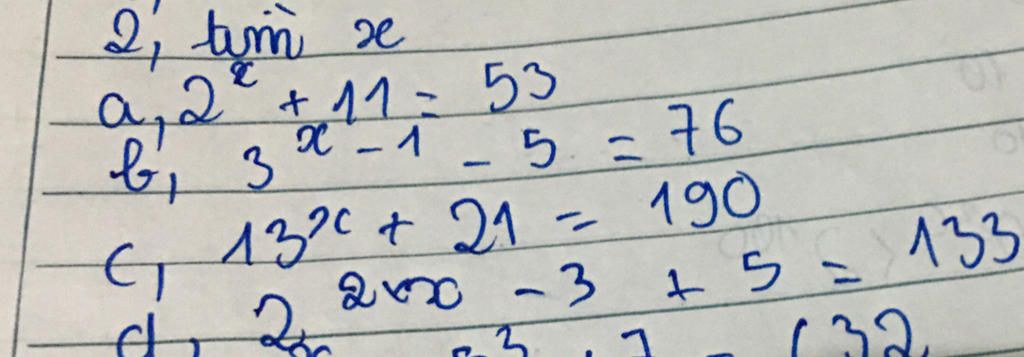 2, tìm x
a, 2^x + 11 = 53
b, 3^x - 1 - 5 = 76
c, 13^x + 21 = 190
d, 2^2.x - 3 + 5 = 133